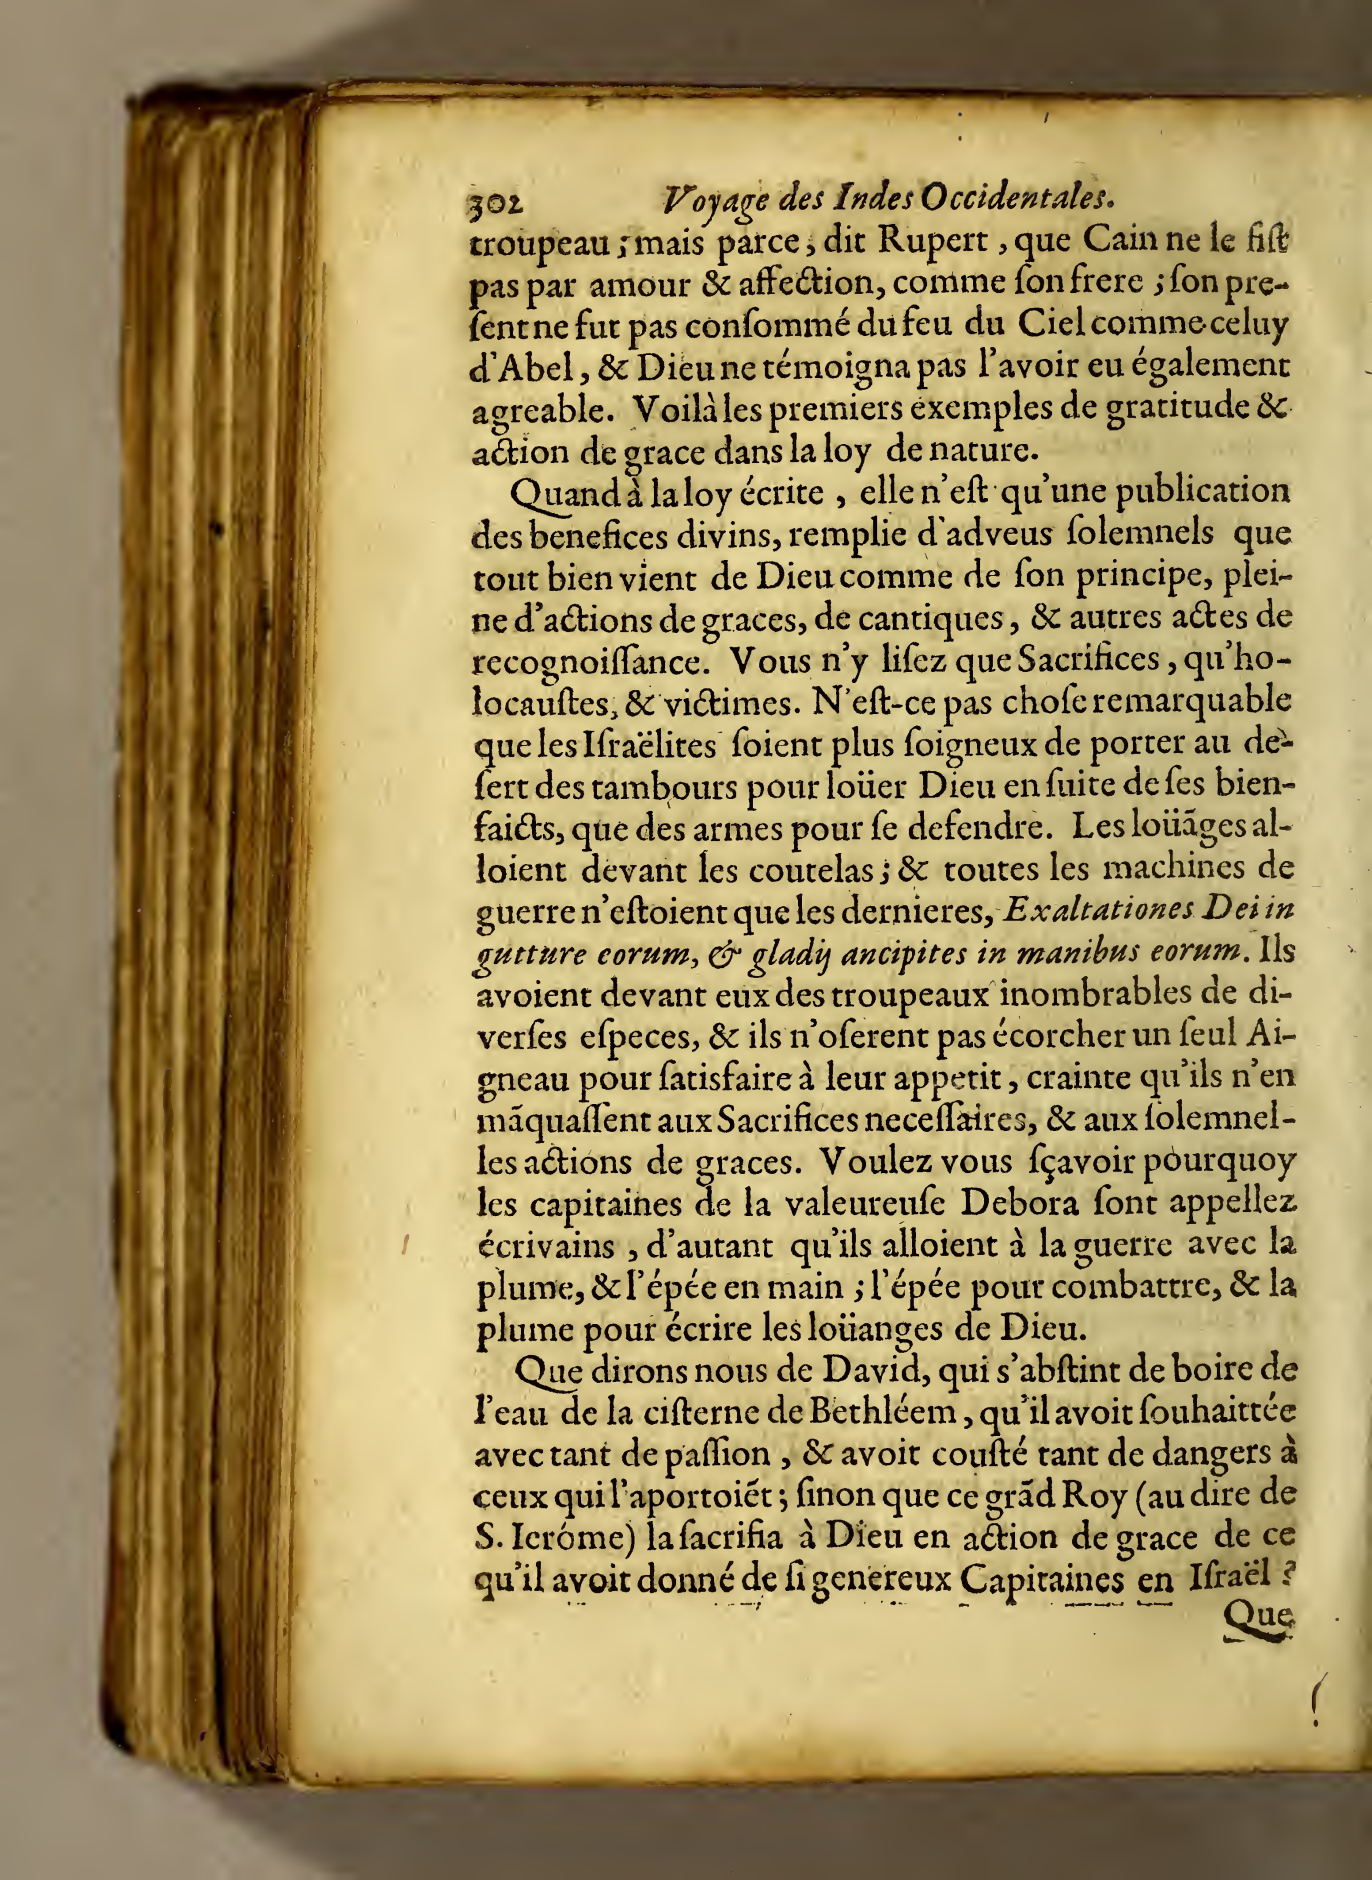 302 Voyage des Indes Occidentales.
troupeau ; mais parce, dit Rupert, que Cain ne le fiſt
pas par amour & affection, comme ſon frere ; ſon pre-
ſent ne fut pas conſommé du feu du Ciel comme celuy
d'Abel, & Dieu ne témoigna pas l'avoir eu également
agreable. Voilà les premiers exemples de gratitude &
action de grace dans la loy de nature.
Quand à la loy écrite, elle n'eſt qu'une publication
des benefices divins, remplie d'adveus ſolemnels que
tout bien vient de Dieu comme de ſon principe, plei-
ne d'actions de graces, de cantiques, & autres actes de
recognoiſſance. Vous n'y liſez que Sacrifices, qu'ho-
locauſtes, & victimes. N'eſt-ce pas choſe remarquable
que les Iſraëlites ſoient plus ſoigneux de porter au de-
ſert des tambours pour loüer Dieu en ſuite de ſes bien-
faicts, que des armes pour ſe defendre. Les loüãges al-
loient devant les coutelas ; & toutes les machines de
guerre n'eſtoient que les dernieres, Exaltationes Dei in
gutture eorum, & gladij ancipites in manibus eorum. Ils
avoient devant eux des troupeaux inombrables de di-
verſes eſpeces, & ils n'oſerent pas écorcher un ſeul Ai-
gneau pour ſatisfaire à leur appetit, crainte qu'ils n'en
mãquaſſent aux Sacrifices neceſſaires, & aux ſolemnel-
les actions de graces. Voulez vous ſçavoir pourquoy
les capitaines de la valeureuſe Debora ſont appellez
écrivains, d'autant qu'ils alloient à la guerre avec la
plume, & l'épée en main ; l'épée pour combattre, & la
plume pour écrire les loüanges de Dieu.
Que dirons nous de David, qui s'abſtint de boire de
l'eau de la ciſterne de Bethléem, qu'il avoit ſouhaittée
avec tant de paſſion, & avoit couſté tant de dangers à
ceux qui l'aportoiẽt ; ſinon que ce grãd Roy (au dire de
S. Ieróme) la ſacrifia à Dieu en action de grace de ce
qu'il avoit donné de ſi genereux Capitaines en Iſraël ?
Que